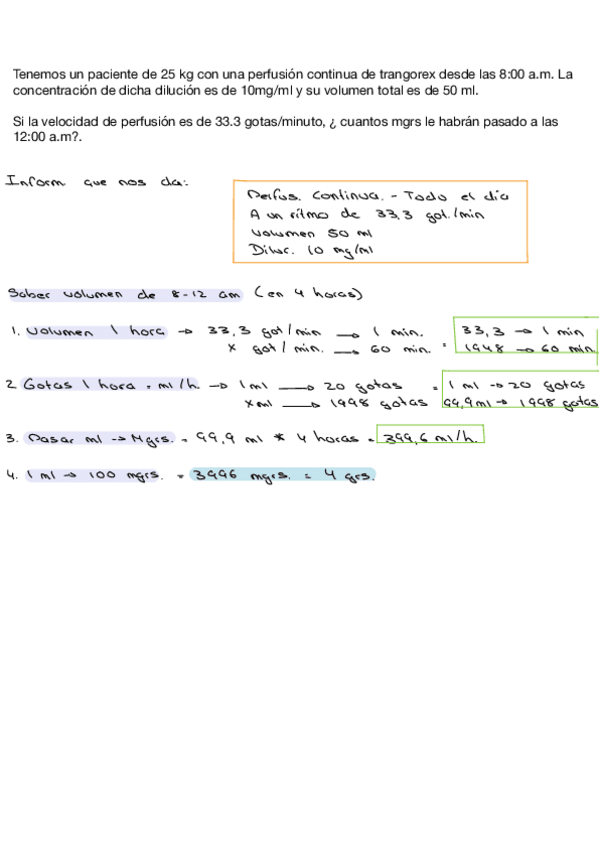 Tenemos un paciente de 25 kg con una perfusión continua de trangorex desde las 8:00 a.m. La
concentración de dicha dilución es de 10mg/ml y su volumen total es de 50 ml.
Si la velocidad de perfusión es de 33.3 gotas/minuto, ¿ cuantos mgrs le habrán pasado a las
12:00 a.m?.
Inform que nos da:
Perfus. Continua. - Todo el día
A un ritmo de 33,3 got./min
Volumen 50 ml
Diluc. 10 mg/ml
Saber volumen de 8-12 am (en 4 horas)
1. Volumen 1 hora → 33,3 got/min → 1 min. = 33,3 → 1 min
x got/min. → 60 min. 1948 → 60 min.
2. Gotas 1 hora = ml/h. → 1 ml → 20 gotas = 1 ml → 20 gotas
x ml → 1998 gotas 99,9 ml → 1998 gotas
3. Pasar ml → Mgrs. = 99,9 ml * 4 horas = 399,6 ml/h.
4. 1 ml → 100 mgrs. = 3996 mgrs. = 4 grs.